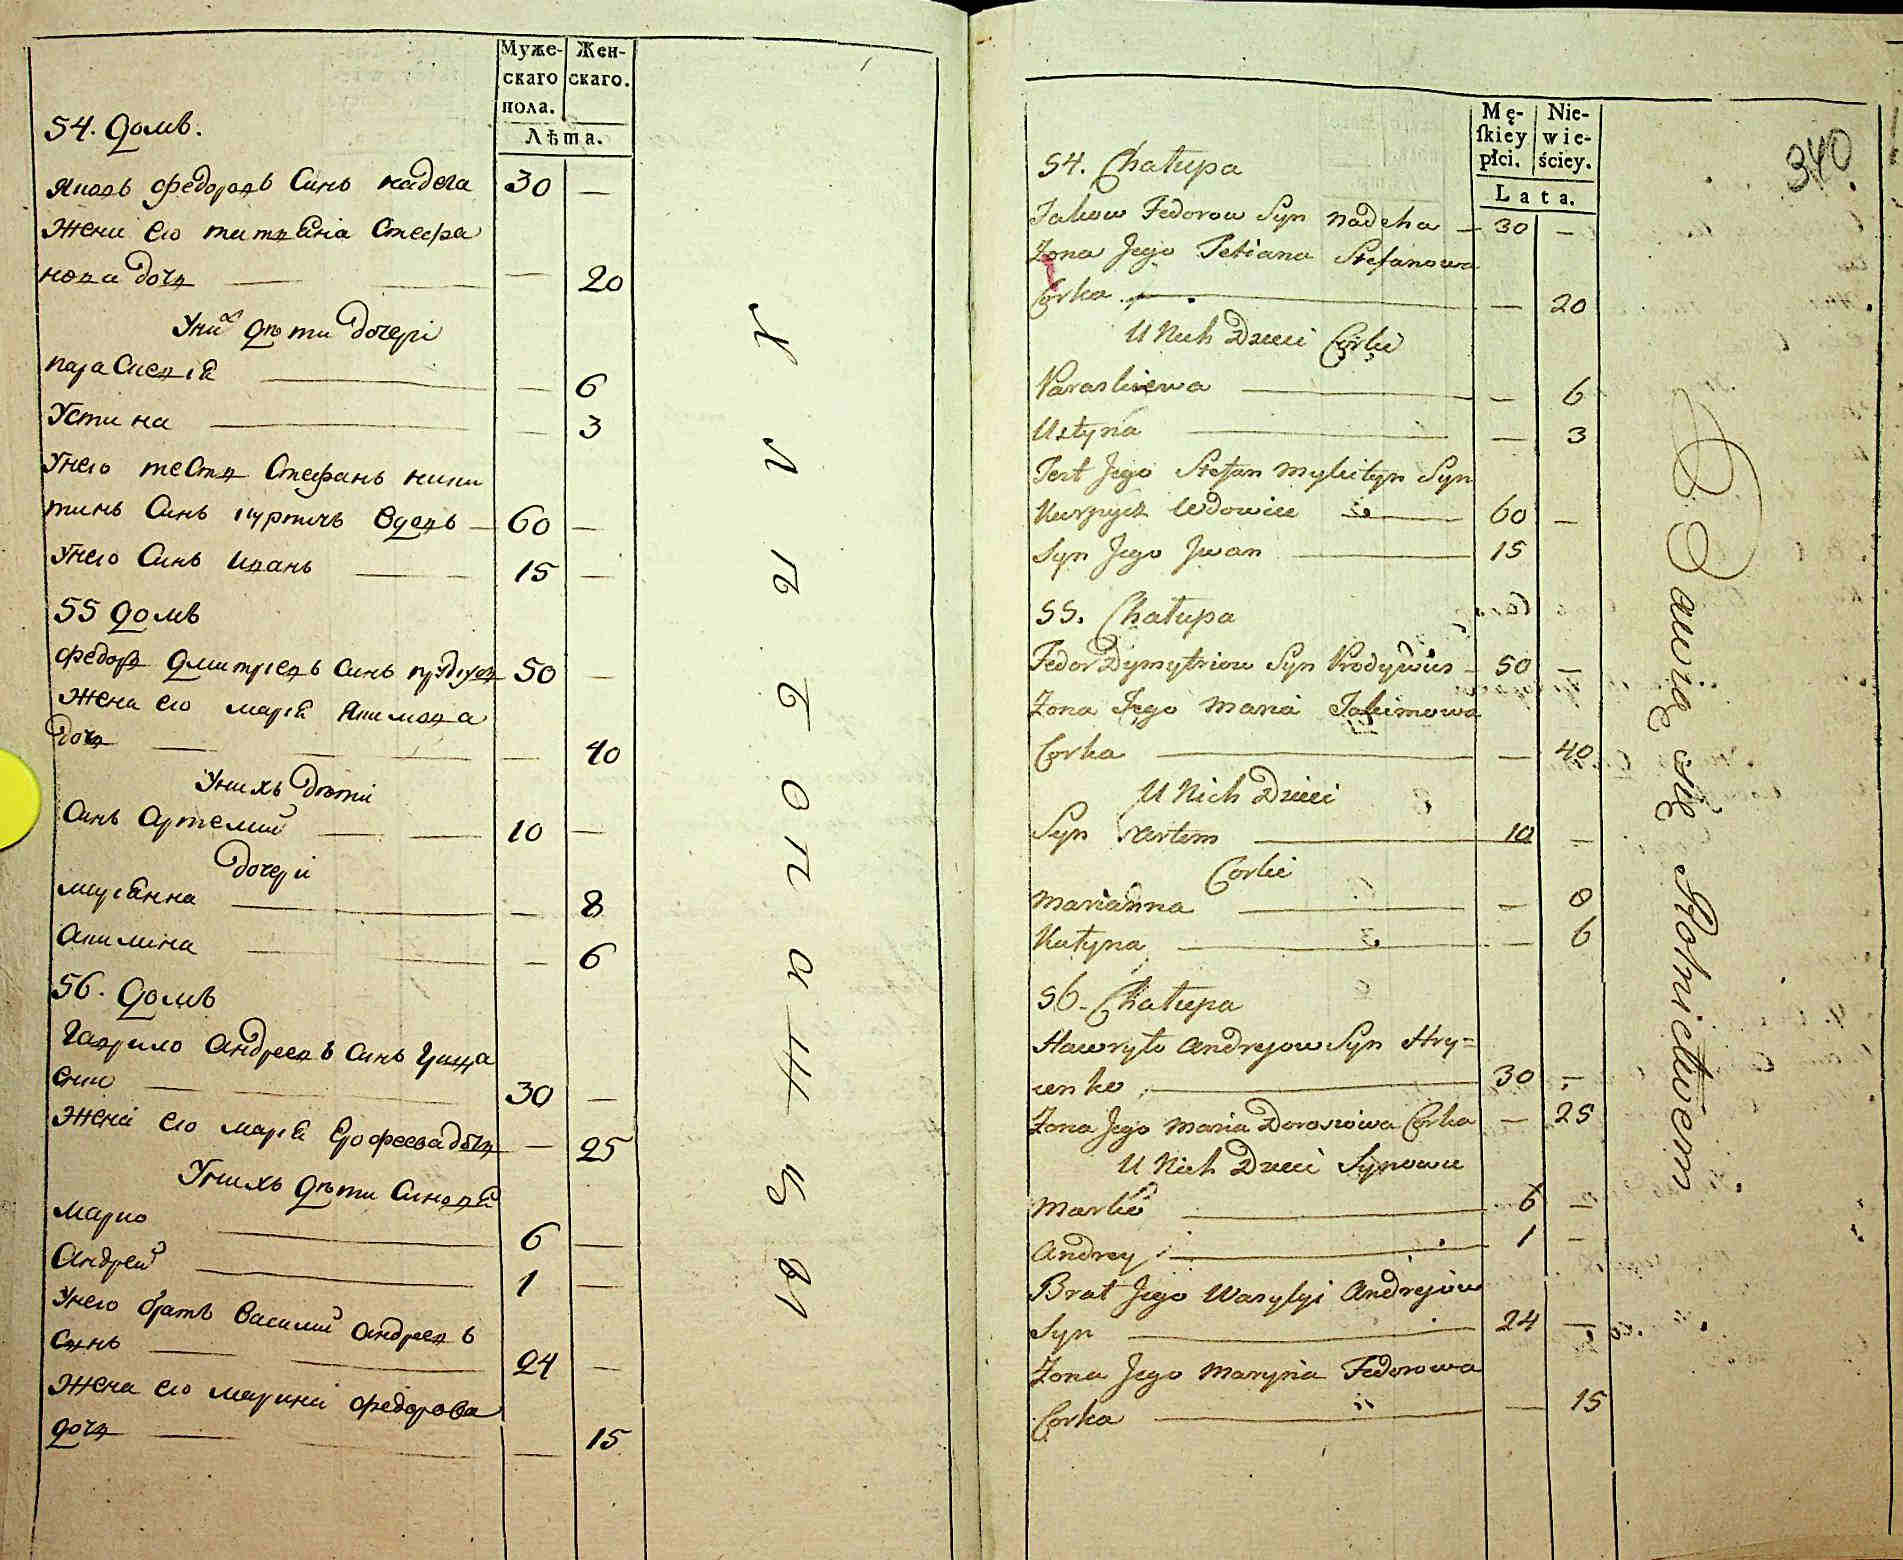 Муже-
скаго
пола.
Жен-
скаго.
Лѣта.
54. Домъ.
Яковъ Федоровъ Синъ надега 30 —
Жена его татиѣна Стефа
нова доч — 20
Уних дѣти дочері
параскевіѣ — 6
Устина — 3
Унего тесть Стефанъ ники
тинъ Синъ вдовъ — 60 —
Унего Синъ иванъ 15 —
55 домъ
Федоръ Дмитріевъ Синъ 50 —
Жена его маріѣ Якимова
доч — 40
Унихъ дѣти
Синъ Артемий 10 —
дочері
маріѣнна — 8
акилина — 6
56. Домъ
Гаврило Андреевъ Синъ грица
енко 30 —
Жена его маріѣ Ерофеева доч — 25
Унихъ дѣти Синовѣ
Марко 6 —
Андрей 1 —
Унего братъ Василий Андреевъ
Синъ 24 —
Жена его марина Федорова
доч — 15
Mę-
ſkiey
płci.
Nie-
wie-
ściey.
Lata.
340
54. Chałupa
Jakow Fedorow Syn Nadeha — 30 —
Żona Jego Tetiana Stefanowa
Corka — 20
U Nich Dzieci Corki
Paraskiewa — 6
Ustyna — 3
Test Jego Stefan Mykityn Syn
Wdowiec 60 —
Syn Jego Jwan 15
55. Chałupa
Fedor Dymytriow Syn Prodywus 50 —
Żona Jego Maria Jakimowa
Corka — 40
U Nich Dzieci
Syn Artem 10 —
Corki
Marianna — 8
Katyna — 6
56. Chałupa
Hawryło Andrejow Syn Hry=
cenko 30 —
Żona Jego Maria Doroszowa Corka — 25
U Nich Dzieci Synowie
Marko 6 —
Andrey 1 —
Brat Jego Wasylyi Andrejow
Syn 24 —
Żona Jego Maryna Fedorowa
Corka — 15
Bawię się Rolnictwem